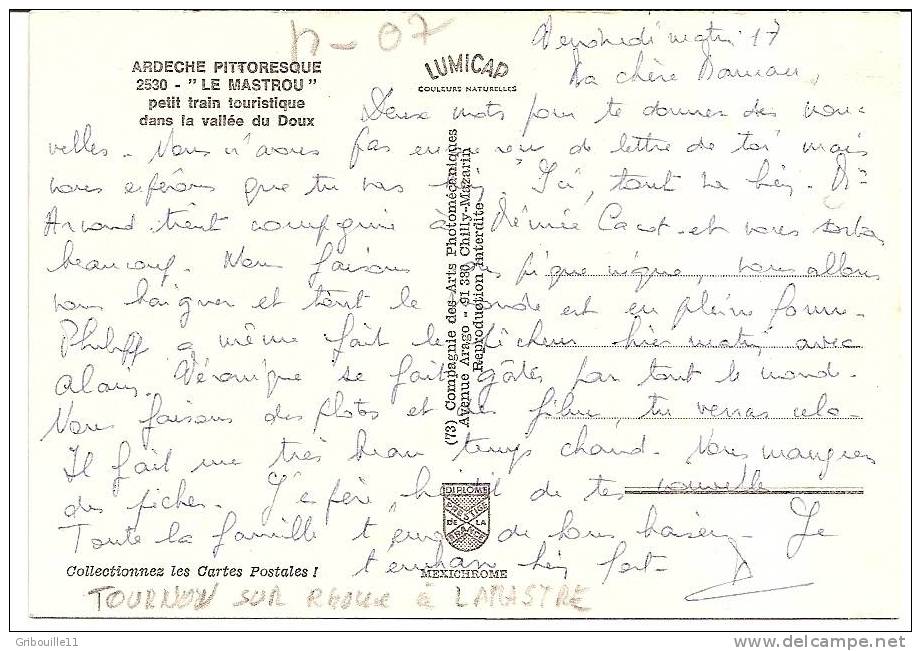 n-07
ARDECHE PITTORESQUE
2530 - " LE MASTROU "
petit train touristique
dans la vallée du Doux
LUMICAP
COULEURS NATURELLES
Vendredi matin 17
Ma chère Maman,
Deux mots pour te donner des nou-
velles. Nous n'avons pas encore reçu de lettre de toi mais
nous espérons que tu vas bien. Ici, tout va bien.
tient compagnie à Mémée et nous
beaucoup. Nous faisons des pique nique, nous allons
nous baigner et tout le monde est en pleine forme.
Philipp a même fait le pêcheur hier matin avec
Alain. Véronique se fait gâter par tout le monde.
Nous faisons des photos et des films, tu verras cela.
Il fait une très beau temps chaud. Nous mangeons
des pêches. J'espère bientôt de tes nouvelles
Toute la famille t'envoie de bons baisers. Je
t'embrasse bien fort
(73) Compagnie des Arts Photomécaniques
Avenue Arago - 91 380 Chilly-Mazarin
Reproduction interdite
DIPLOME
PRESTIGE
DE LA
FRANCE
MEXICHROME
Collectionnez les Cartes Postales !
TOURNON SUR RHONE à LAMASTRE
Gribouille11
http://www.delcampe.net